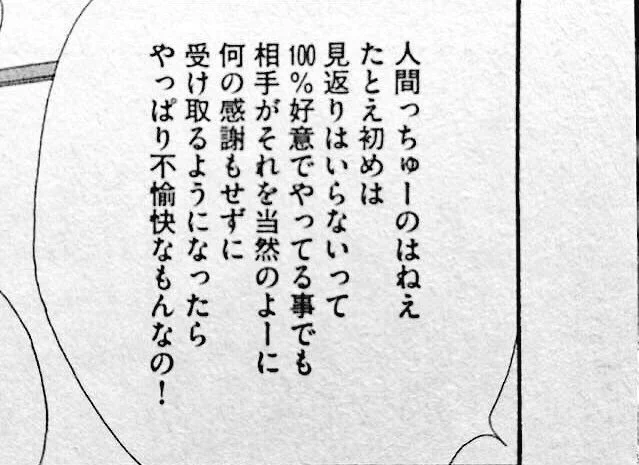 人間っちゅーのはねえ
たとえ初めは
見返りはいらないって
100%好意でやってる事でも
相手がそれを当然のよーに
何の感謝もせずに
受け取るようになったら
やっぱり不愉快なもんなの！